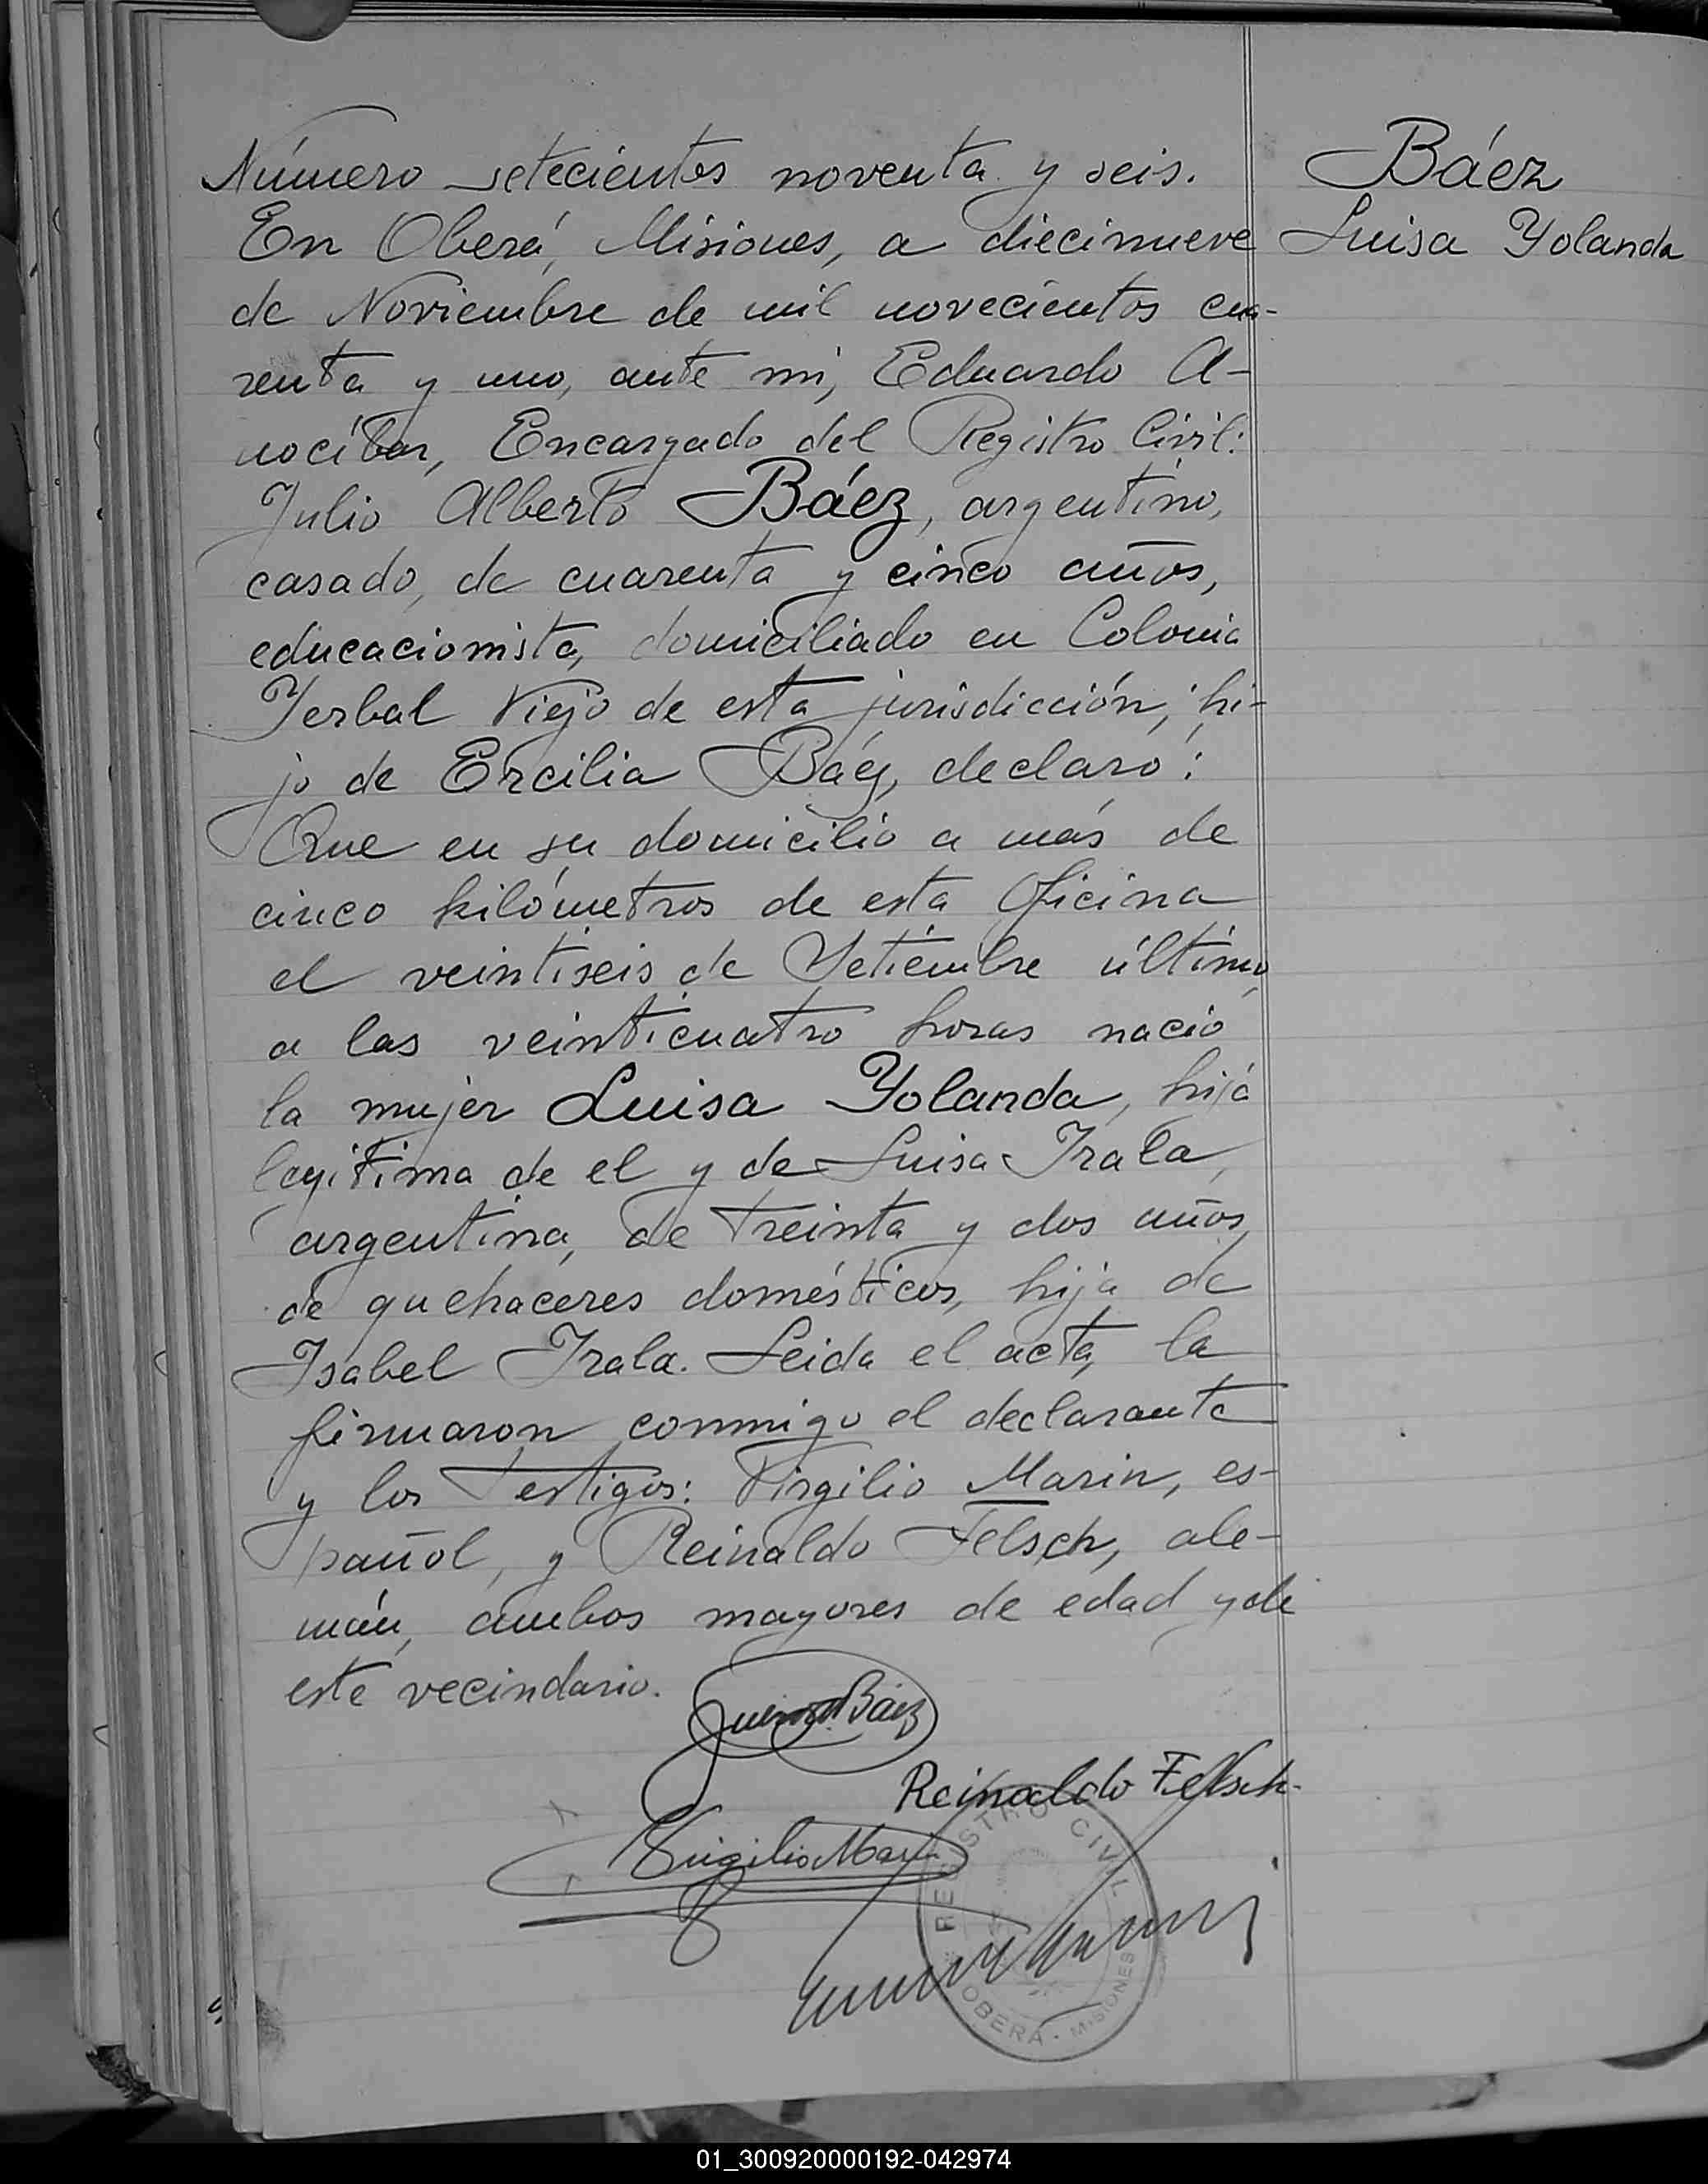 Número setecientos noventa y seis.
En Oberá, Misiones, a diecinueve
de Noviembre de mil novecientos cua-
renta y uno, ante mi, Eduardo A-
nocíbar, Encargado del Registro Civil:
Julio Alberto Báez, argentino,
casado, de cuarenta y cinco años,
educacionista, domiciliado en Colonia
Yerbal Viejo de esta jurisdicción, hi-
jo de Ercilia Báez, declaró:
Que en su domicilio a más de
cinco kilómetros de esta Oficina
el veintiseis de Setiembre último,
a las veinticuatro horas nació
la mujer Luisa Yolanda, hija
legítima de el y de Luisa Irala,
argentina, de treinta y dos años,
de quehaceres domésticos, hija de
Isabel Irala. Leida el acta, la
firmaron conmigo el declarante
y los testigos: Virgilio Marin, es-
pañol, y Reinaldo Felsch, ale-
mán, ambos mayores de edad y de
este vecindario.
Báez
Luisa Yolanda
Báez
Reinaldo Felsch
Virgilio Marin
REGISTRO CIVIL
OBERÁ - MISIONES
01_300920000192-042974